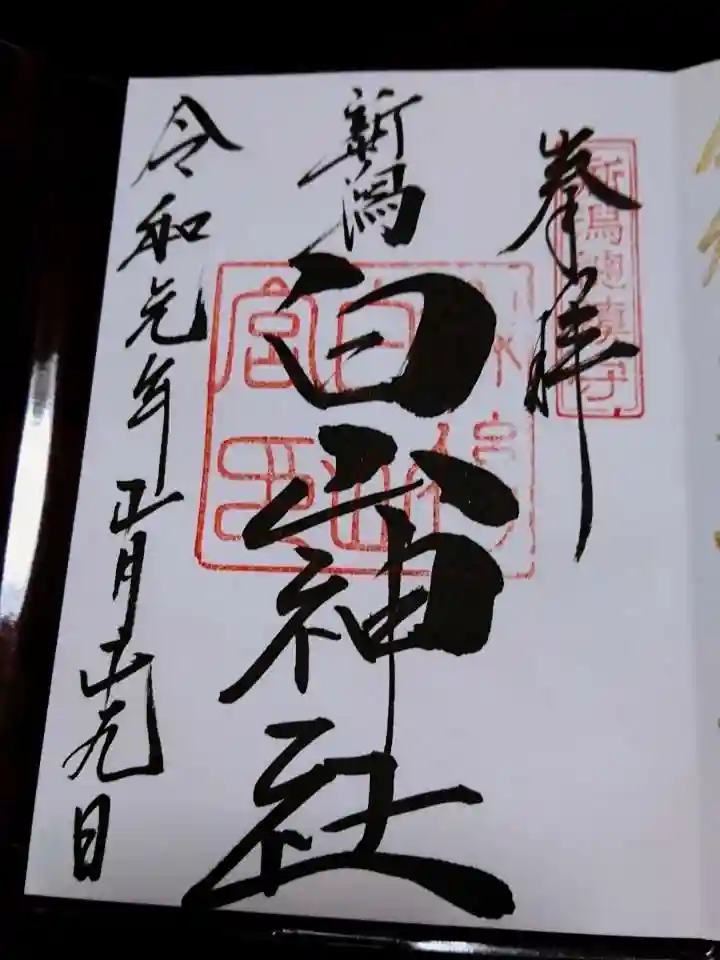 奉拝
新潟總鎮守
新潟
白山神社
令和元年五月廿九日